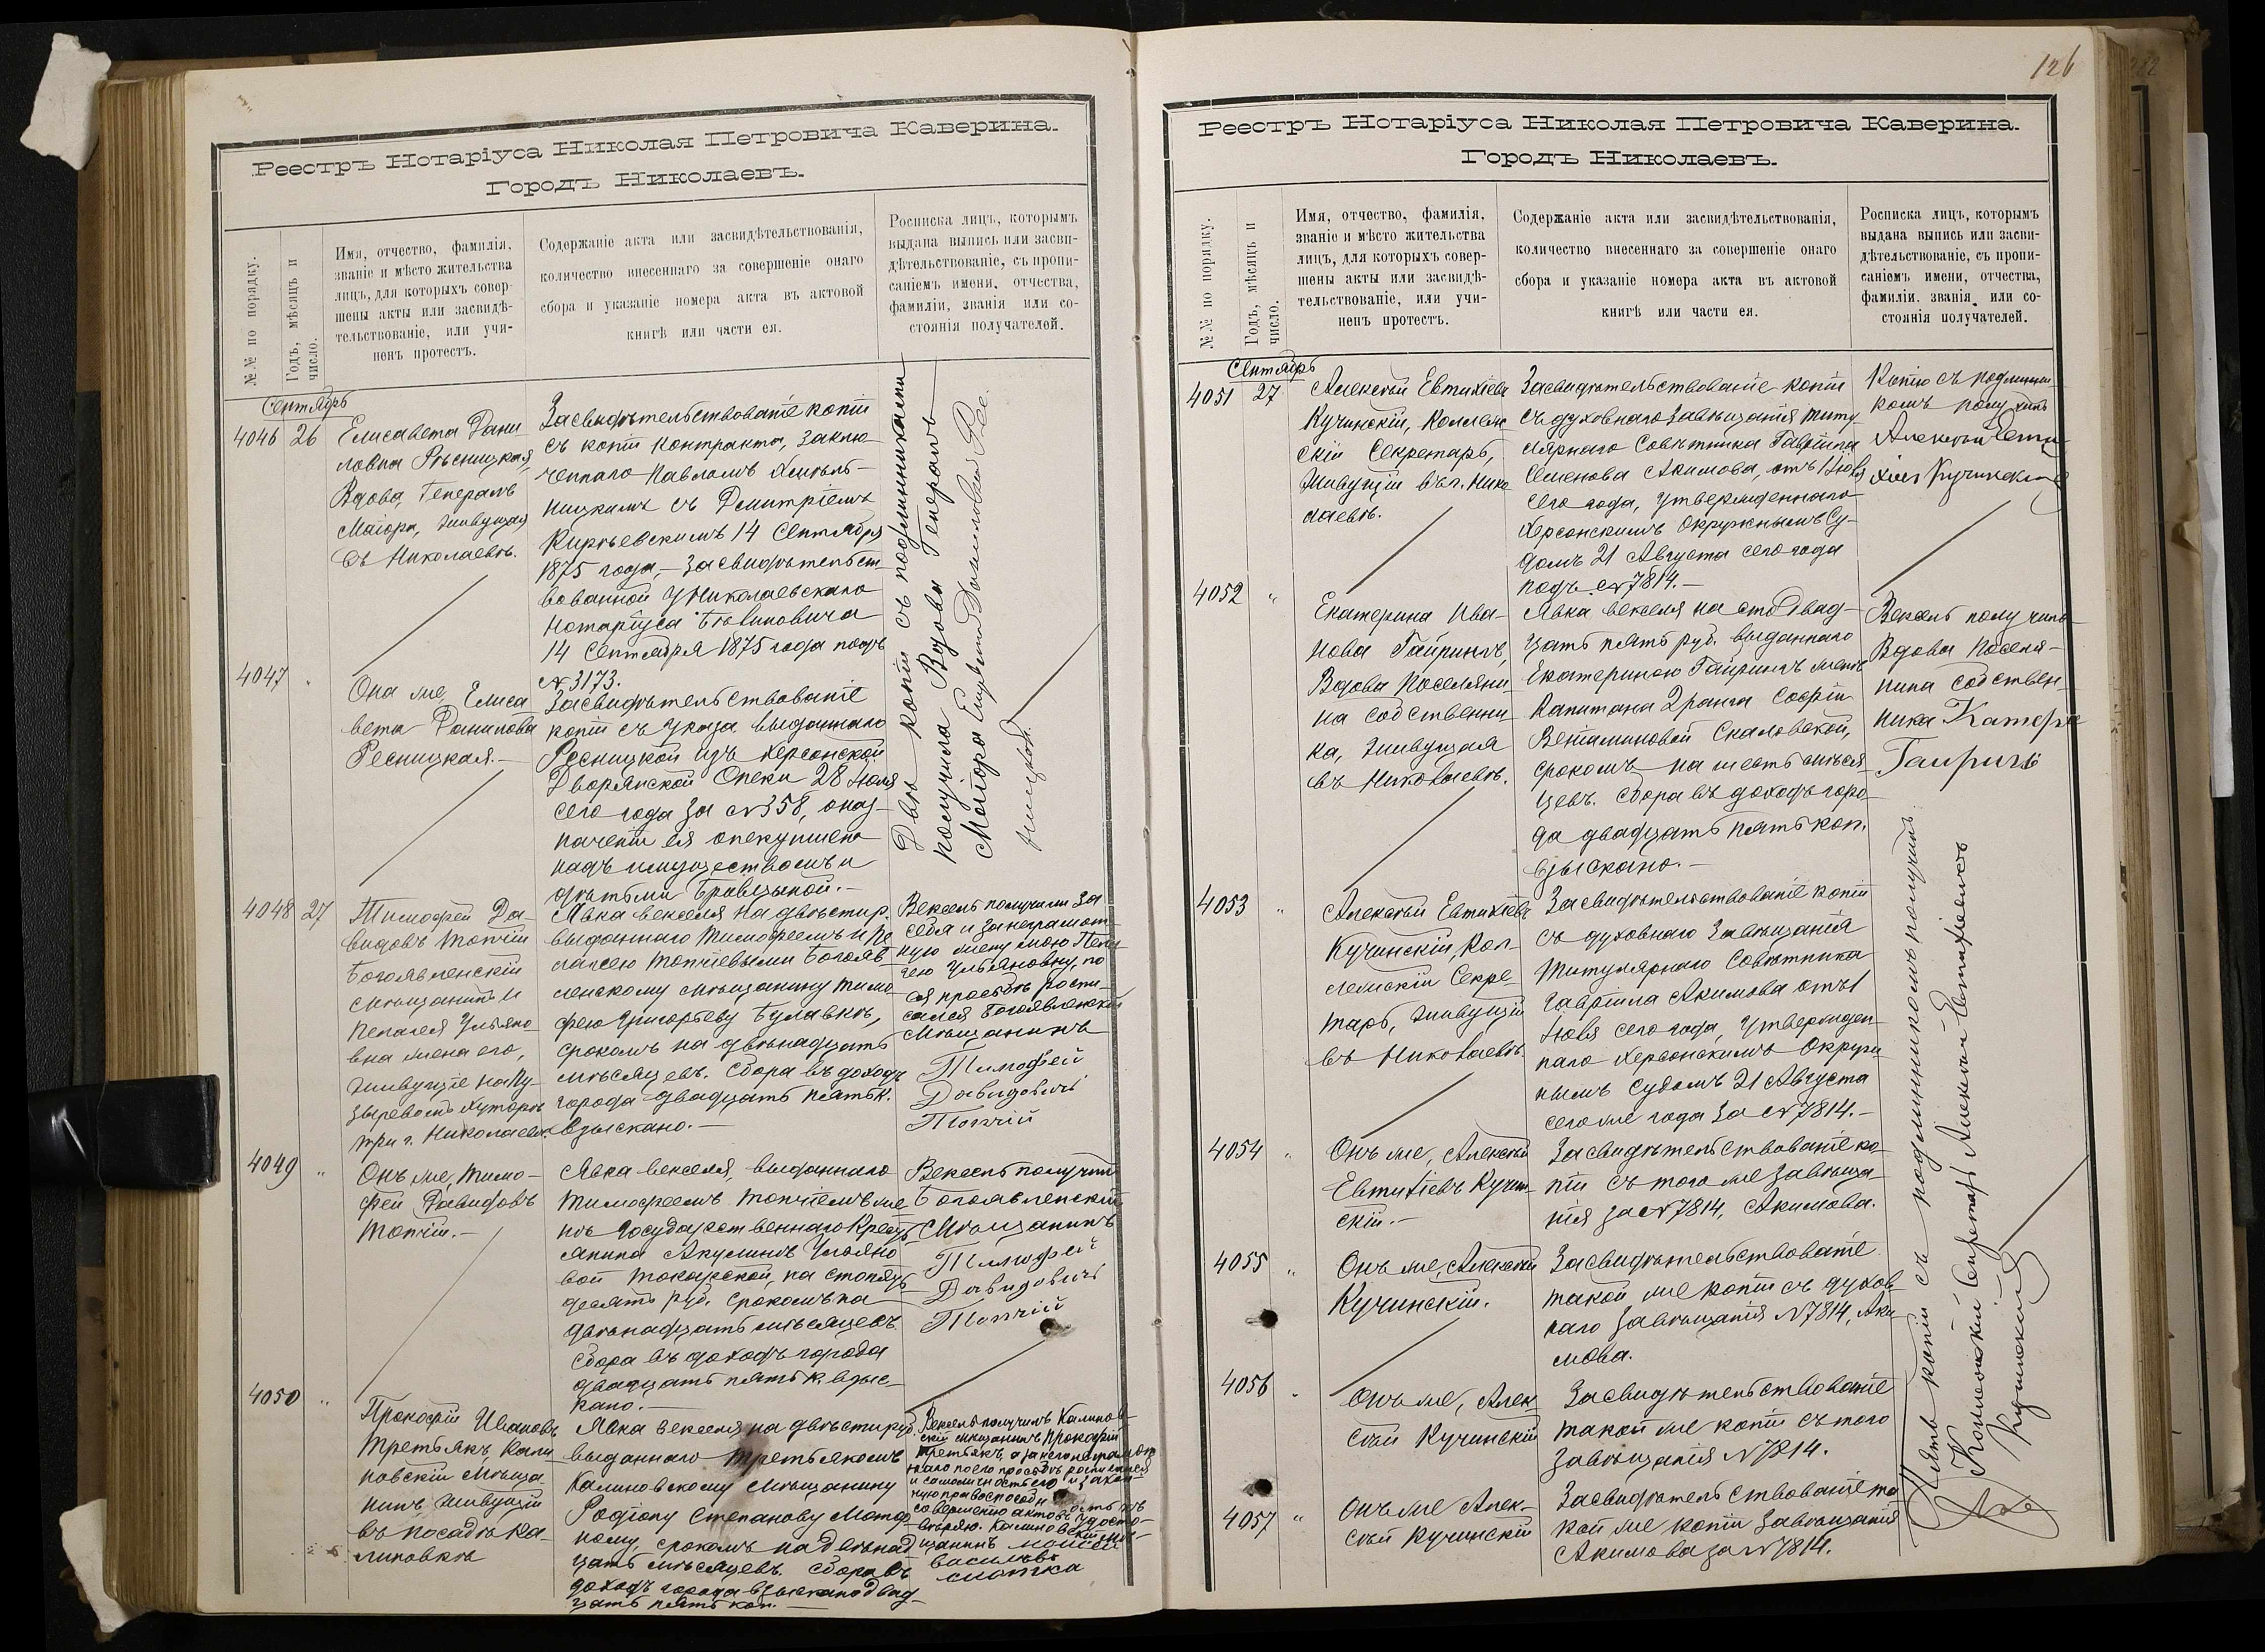 Реестръ Нотаріуса Николая Петровича Каверина.
Городъ Николаевъ.
№№ по порядку.
Годъ, мѣсяцъ и
число.
Имя, отчество, фамилія,
званіе и мѣсто жительства
лицъ, для которыхъ совер-
шены акты или засвидѣ-
тельствованіе, или учи-
ненъ протестъ.
Содержаніе акта или засвидѣтельствованія,
количество внесеннаго за совершеніе онаго
сбора и указаніе номера акта въ актовой
книгѣ или части ея.
Росписка лицъ, которымъ
выдана выпись или засви-
дѣтельствованіе, съ пропи-
саніемъ имени, отчества,
фамиліи, званія или со-
стоянія получателей.
Сентябрь
4046 26
Елисавета Дани
ловна Рѣсницкая,
Вдова, Генералъ
Маіора, живущая
въ Николаевѣ.
Засвидѣтельствованіе копіи
съ копіи контракта, заклю
ченнаго Павломъ Хмѣль-
ницкимъ съ Дмитріемъ
Кирѣевскимъ 14 Сентября
1875 года, - засвидѣтельст
вованной у Николаевскаго
Нотаріуса
14 Сентября 1875 года подъ
№ 3173.
4047 "
Она же, Елиса
вета Данилова
Ресницкая. -
Засвидѣтельствованіе
копіи съ указа выданнаго
Ресницкой изъ Херсонской
Дворянской Опеки 28 Іюля
сего года за № 358, о наз-
наченіи ея опекуншею
надъ имуществомъ и
дѣтьми
Двѣ копіи съ подлинниками
получила Вдова Генералъ
Маіора Елисавета Даниловна Рѣс
ницкая.
4048 27
Тимофей Да-
видовъ Топчій
Богоявленскій
мѣщанинъ и
Пелагея Ульяно-
вна жена его,
живущіе на Пу-
зыревомъ Хуторѣ
при г. Николаевѣ.
Явка векселя на двѣсти р.
выданнаго Тимофеемъ и Пе
лагеею Топчіевыми Богояв-
ленскому мѣщанину Тимо
фею Григорьеву Булавкѣ,
срокомъ на двѣнадцать
мѣсяцевъ. Сбора въ доходъ
города двадцать пять к.
взыскано. -
Вексель получили за
себя и за неграмот
ную жену мою Пела
гею Ульяновну, по
ея просьбѣ роспи-
сался Богоявленскій
Мѣщанинъ
Тимофей
Давидовичъ
Топчій
4049 "
Онъ же, Тимо-
фей Давидовъ
Топчій. -
Явка векселя, выданнаго
Тимофеемъ Топчіемъ же
нѣ Государственнаго Кресть
янина Акулинѣ Ульяно
вой Токарской, на сто пять
десятъ руб. срокомъ на
двѣнадцать мѣсяцевъ.
Сбора въ доходъ города
двадцать пять к. взыс-
кано. -
Вексель получилъ
Богоявленскій
Мѣщанинъ
Тимофей
Давидовичъ
Топчій
4050 "
Прокофій Ивановъ
Третьякъ, Кали
новскій мѣща
нинъ, живущій
въ посадѣ Ка-
линовкѣ
Явка векселя на двѣсти руб.
выданнаго Третьякомъ
Калиновскому мѣщанину
Родіону Степанову Мотор
ному, срокомъ на двѣнад
цать мѣсяцевъ. Сбора въ
доходъ города взыскано двад-
цать пять коп. -
Вексель получилъ Калинов-
скій мѣщанинъ Прокофій
Третьякъ, а за него неграмот
наго по его просьбѣ росписался
и самоличность его и закон-
ную правоспособность къ
совершенію актовъ удосто-
вѣряю. Калиновскій мѣ-
щанинъ
126
Реестръ Нотаріуса Николая Петровича Каверина.
Городъ Николаевъ.
№№ по порядку.
Годъ, мѣсяцъ и
число.
Имя, отчество, фамилія,
званіе и мѣсто жительства
лицъ, для которыхъ совер-
шены акты или засвидѣ-
тельствованіе, или учи-
ненъ протестъ.
Содержаніе акта или засвидѣтельствованія,
количество внесеннаго за совершеніе онаго
сбора и указаніе номера акта въ актовой
книгѣ или части ея.
Росписка лицъ, которымъ
выдана выпись или засви-
дѣтельствованіе, съ пропи-
саніемъ имени, отчества,
фамиліи. званія или со-
стоянія получателей.
Сентябрь
4051 27
Алексѣй Евтихіевъ
Кучинскій, Коллеж
скій Секретарь,
живущій въ г. Нико
лаевѣ.
Засвидѣтельствованіе копіи
съ духовнаго завѣщанія титу
лярнаго Совѣтника Гавріила
Семенова Акимова, отъ 1 Іюня
сего года, утвержденнаго
Херсонскимъ Окружнымъ Су-
домъ 21 Августа сего года
подъ № 7814. -
Копію съ подлинни-
комъ получилъ
Алексѣй Евти
хіевъ Кучинскій
4052 "
Екатерина Ива-
нова Гайрингъ,
Вдова поселяни-
на собственни-
ка, живущая
въ Николаевѣ.
Явка векселя на сто двад-
цать пять руб. выданнаго
Екатериною Гайрингъ женѣ
Капитана 2 ранга Софіи
Веніаминовой Скаловской,
срокомъ на шесть мѣся
цевъ. Сбора въ доходъ горо-
да двадцать пять коп.
взыскано. -
Вексель получила
Вдова поселя-
нина собствен-
ника
4053 "
Алексѣй Евтихіевъ
Кучинскій, Кол-
лежскій Секре-
тарь, живущій
въ Николаевѣ.
Засвидѣтельствованіе копіи
съ духовнаго завѣщанія
Титулярнаго Совѣтника
Гавріила Акимова отъ 1
Іюня сего года, утвержден
наго Херсонскимъ Окруж
нымъ Судомъ 21 Августа
сего же года за № 7814. -
4054 "
Онъ же, Алексѣй
Евтихіевъ Кучин-
скій. -
Засвидѣтельствованіе ко-
піи съ того же завѣща-
нія за № 7814, Акимова.
4055 "
Онъ же, Алексѣй
Кучинскій.
Засвидѣтельствованіе
такой же копіи съ духов-
наго завѣщанія № 7814, Аки
мова.
4056 "
Онъ же, Алек-
сѣй Кучинскій
Засвидѣтельствованіе
такой же копіи съ того
завѣщанія № 7814.
4057 "
Онъ же Алек-
сѣй Кучинскій
Засвидѣтельствованіе та
кой же копіи завѣщанія
Акимова за № 7814.
Пять копій съ подлинникомъ получилъ
Коллежскій Секретарь Алексѣй Евтихіевичъ
Кучинскій